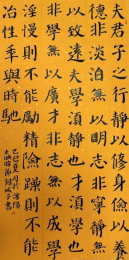 夫君子之行靜以修身儉以養
德非淡泊無以明志非寧靜無
以致遠夫學須靜也才須學也
非學無以廣才非志無以成學
淫慢則不能勵精險躁則不能
治性年與時馳
乙巳夏月於
節錄誡子書